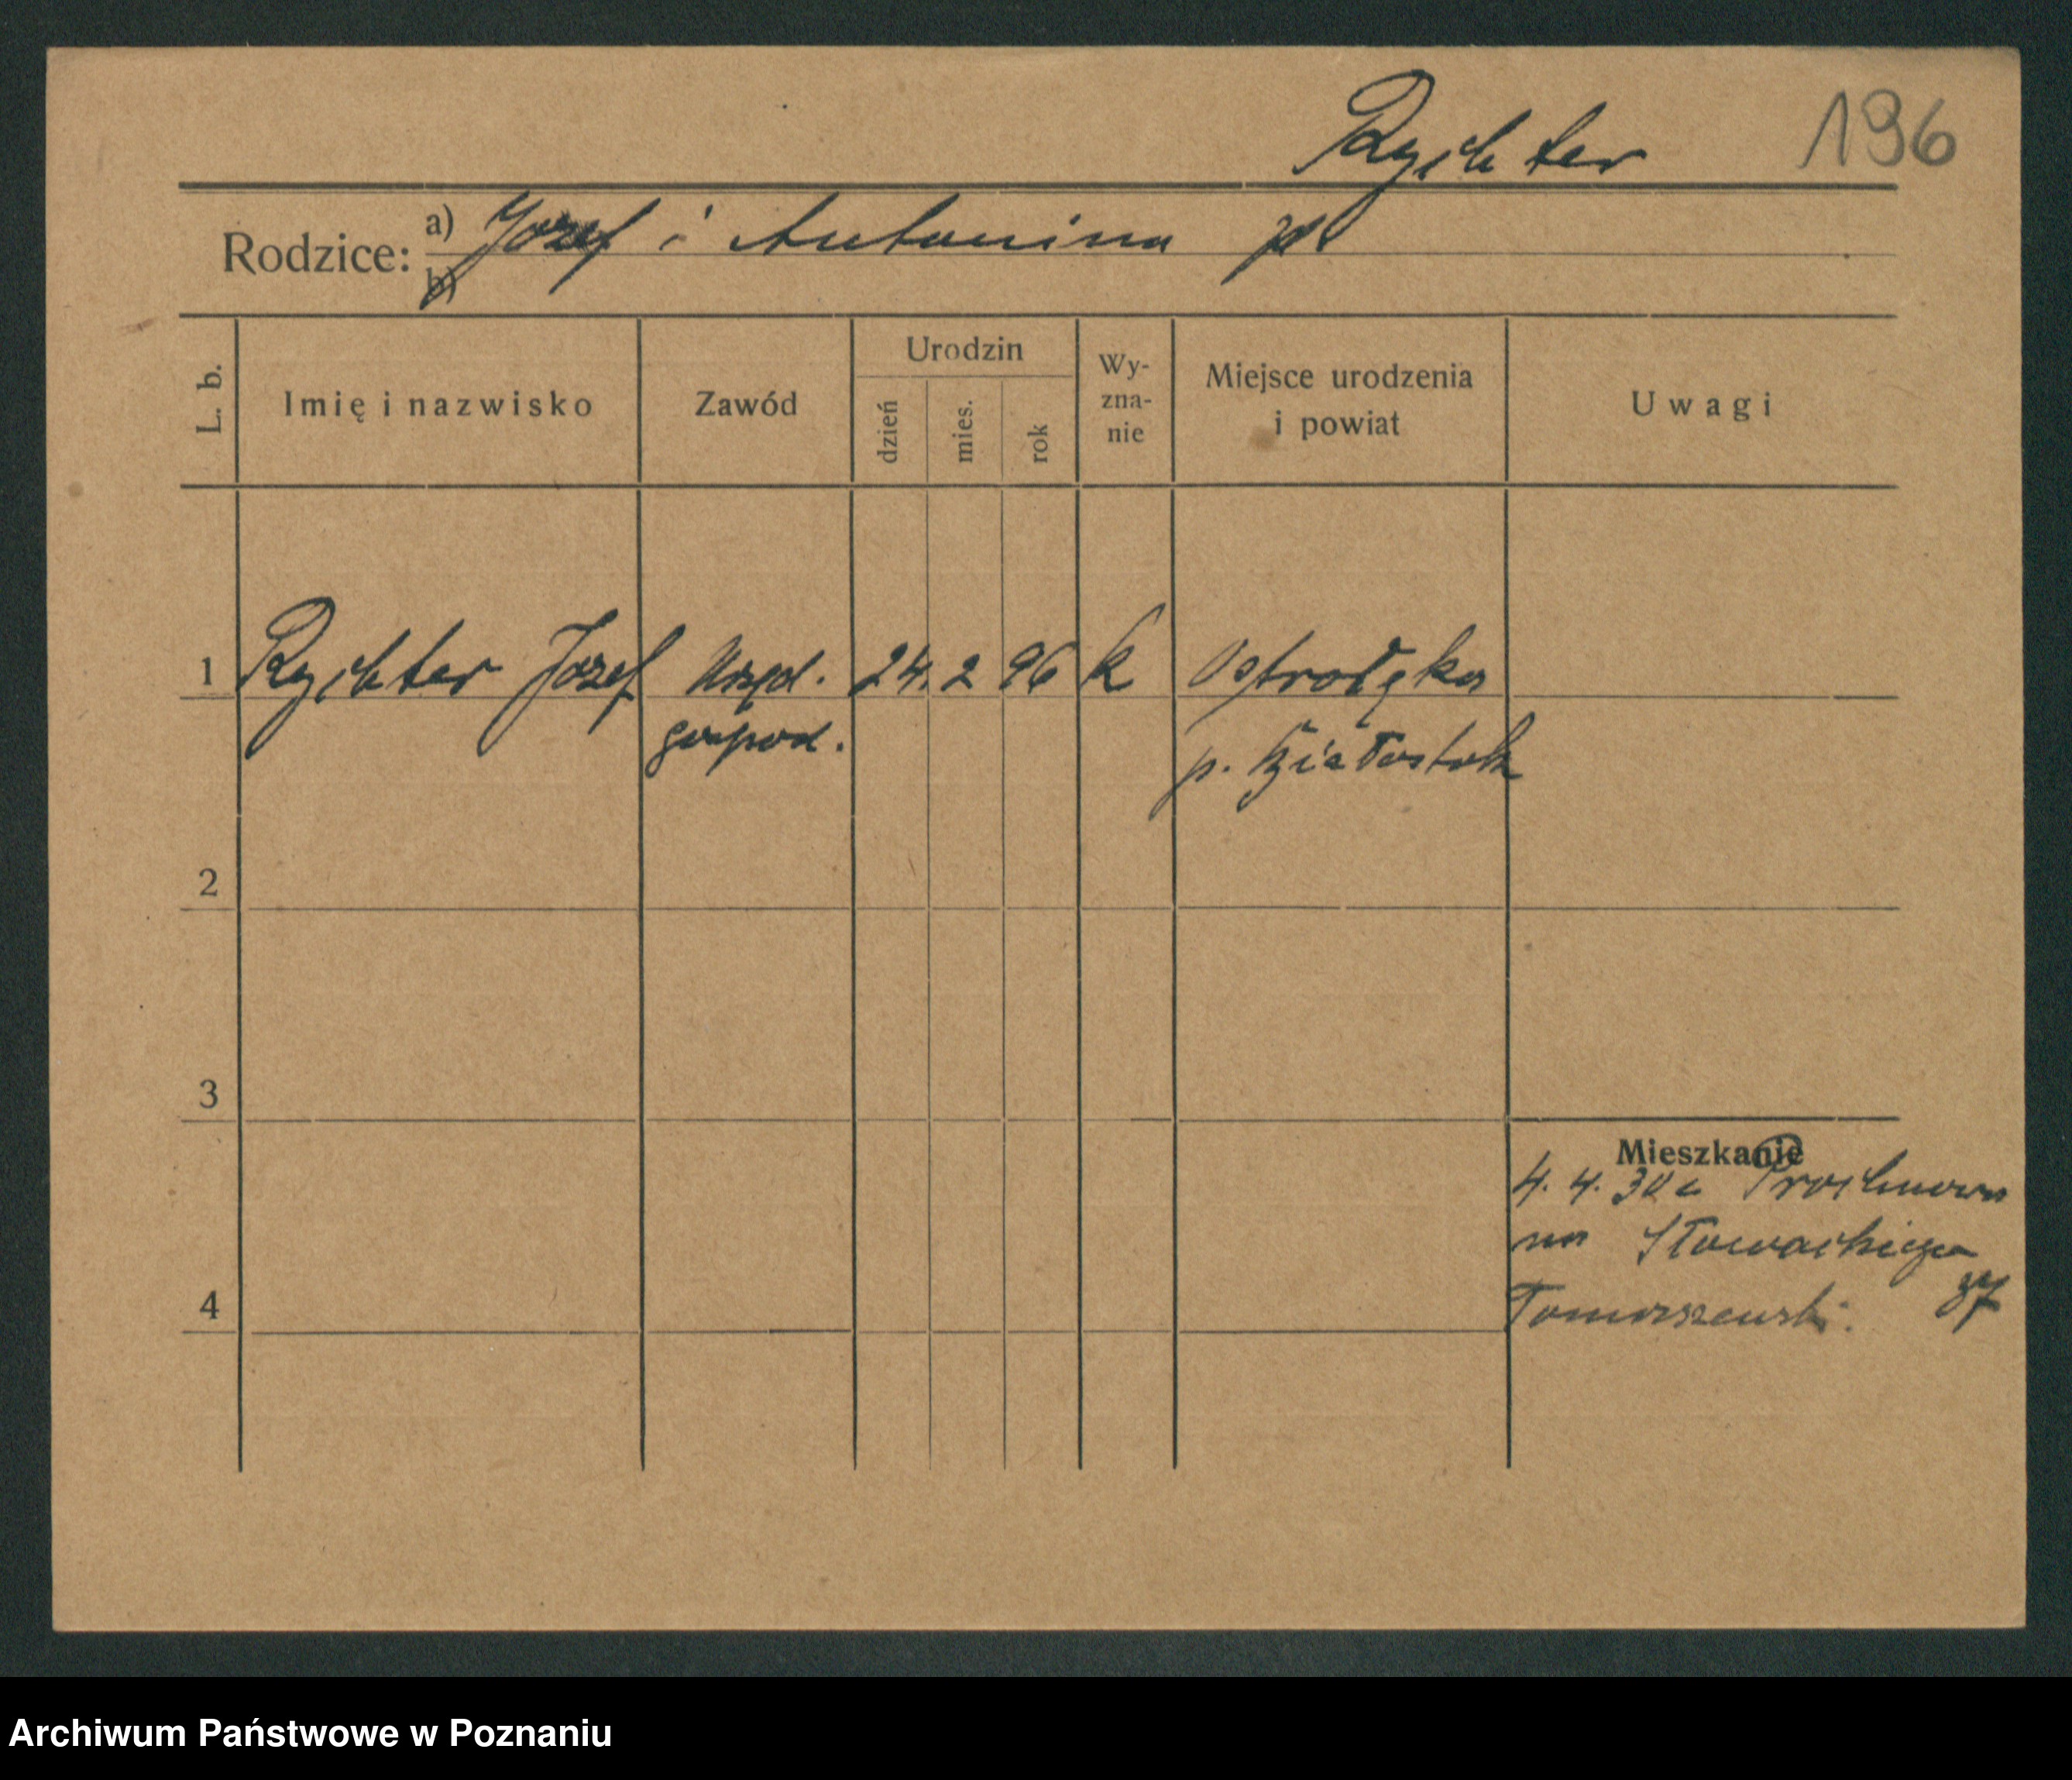 Rychter 196
Rodzice: a) Jozef i Antonina
b)
L. b. Imię i nazwisko Zawód Urodzin dzień mies. rok Wy-zna-nie Miejsce urodzenia i powiat Uwagi
1 Rychter Jozef Urzęd. 24. 2 96 k Ostrołęka
gospod. p. Białostok
2
3
Mieszkanie
4. 4. 30 z
na Słowackiego
37
4 Tomaszewski.
Archiwum Państwowe w Poznaniu